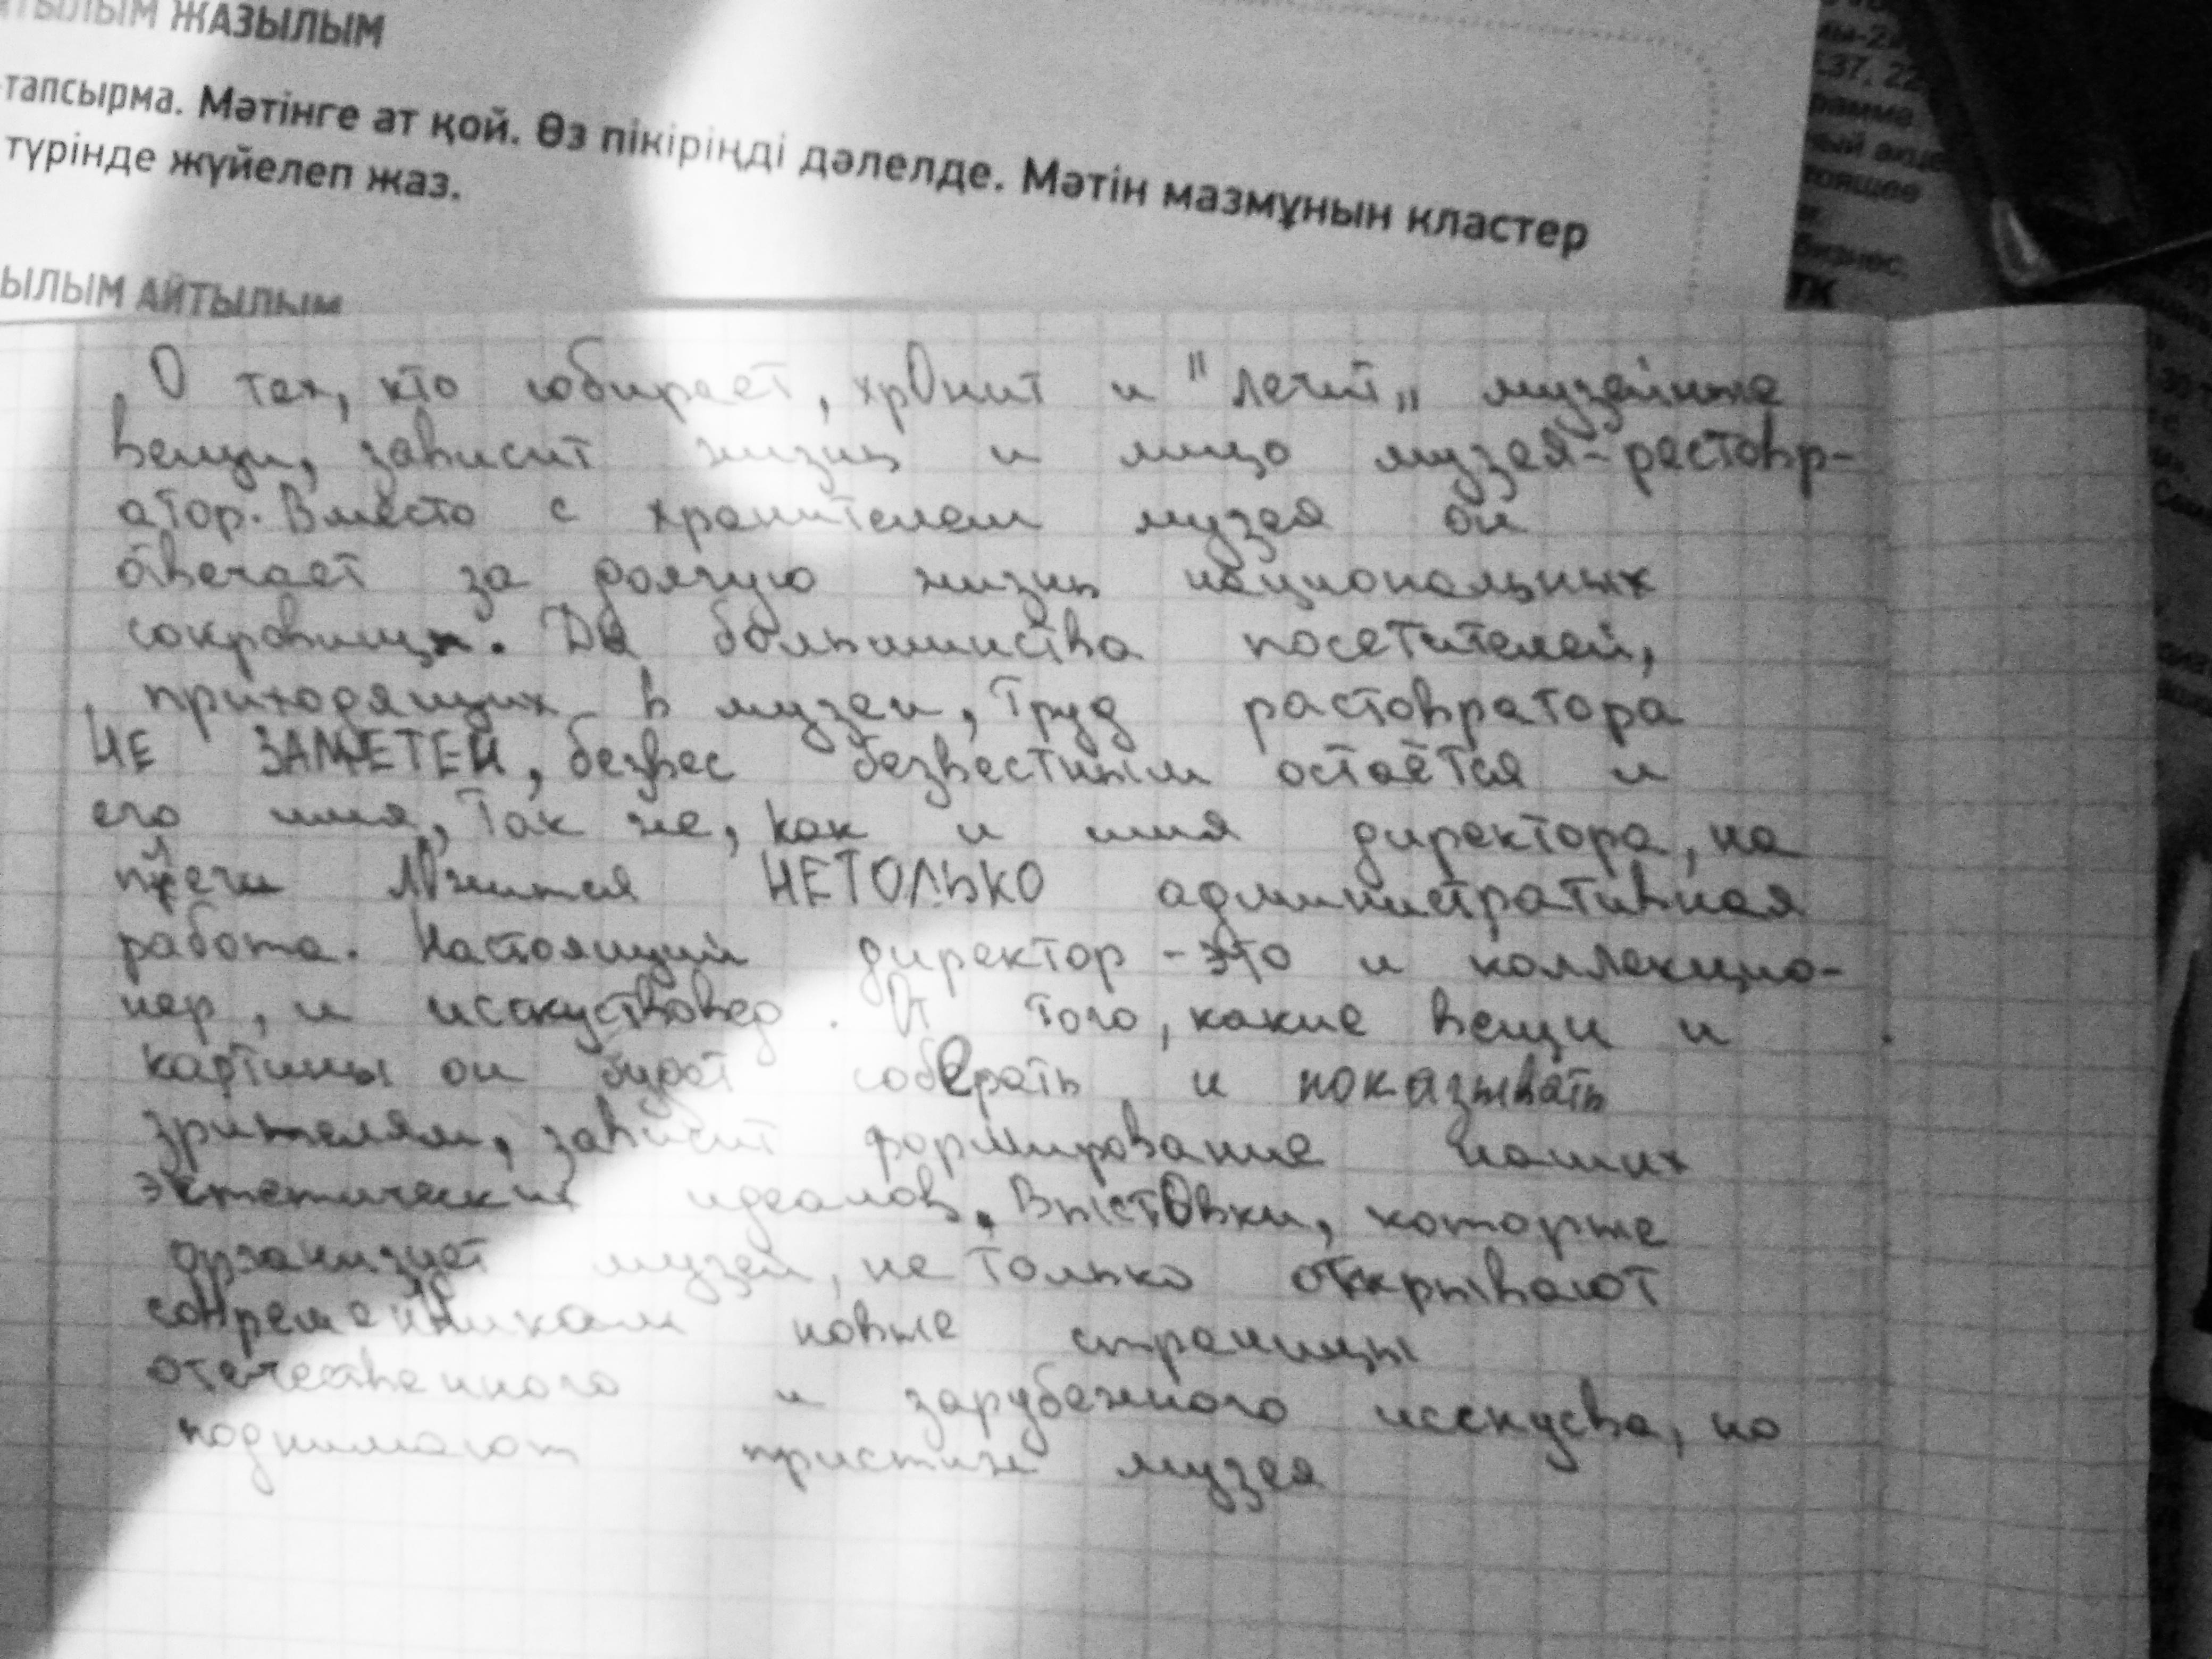 ТЫЛЫМ ЖАЗЫЛЫМ
тапсырма. Мәтінге ат қой. Өз пікіріңді дәлелде. Мәтін мазмұнын кластер
түрінде жүйелеп жаз.
ЫЛЫМ АЙТЫЛЫМ
О тех, кто собирает, хрОнит и "лечит„ музейные
вещи, зависит жизнь и лицо музея-растовр-
атор. Вместо с хранителем музея он
отвечает за долгую жизнь национальных
сокровищ. Дя большинства посетителей,
приходящих в музеи, труд растовратора
НЕ ЗАМЕТЕН, безвес безвестным остаётся и
его имя, так же, как и имя директора, на
плечи лОжится НЕТОЛЬКО административная
работа. Настоящий директор - это и коллекцио-
нер, и исскуствовед. От того, какие вещи и
картины он будет собЕрать и показывать
зрителям, зависит формирование наших
эстетических идеалов. ВыстОвки, которые
организует музей, не только открывают
современникам новые страницы
отечественного и зарубежного исскусва, но
поднимают пристиж музея
37. 22
рамма
тоящее
бизнес,
ТК